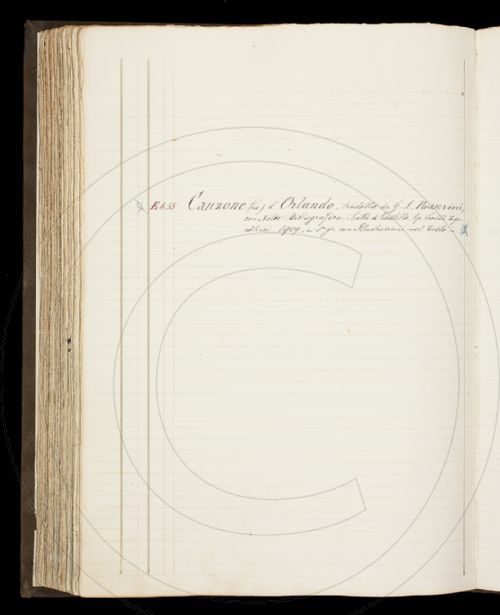 E.4.55 Canzone (la) d'Orlando, tradotta da G. L. Passerini,
con Nota Bibliografica. Città di Castello, Tip.
1909, in 8vo con Illustrazioni nel Testo